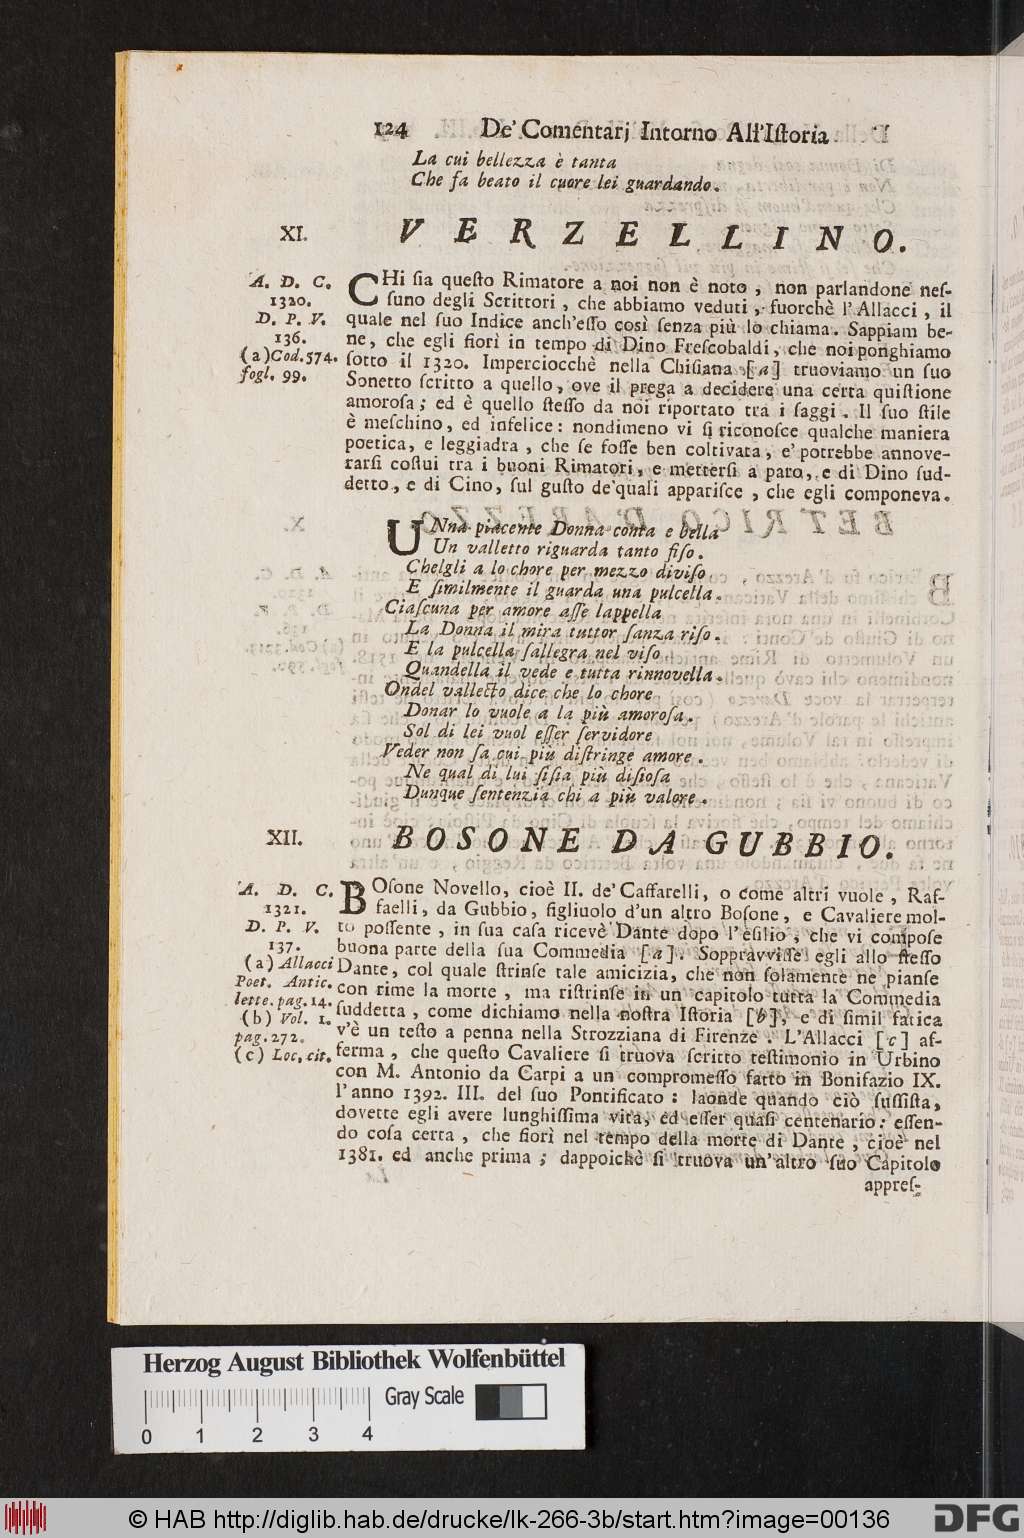 124 De' Comentarj Intorno All'Istoria
La cui bellezza è tanta
Che fa beato il cuore lei guardando.
XI. VERZELLINO.
A. D. C.
1320.
D. P. V.
136.
(a) Cod. 574.
fogl. 99.
CHi ſia queſto Rimatore a noi non è noto, non parlandone neſ-
ſuno degli Scrittori, che abbiamo veduti, fuorchè l'Allacci, il
quale nel ſuo Indice anch'eſſo così ſenza più lo chiama. Sappiam be-
ne, che egli fiorì in tempo di Dino Freſcobaldi, che noi ponghiamo
ſotto il 1320. Imperciocchè nella Chiſiana [a] truoviamo un ſuo
Sonetto ſcritto a quello, ove il prega a decidere una certa quiſtione
amoroſa; ed è quello ſteſſo da noi riportato tra i ſaggi. Il ſuo ſtile
è meſchino, ed infelice: nondimeno vi ſi riconoſce qualche maniera
poetica, e leggiadra, che ſe foſſe ben coltivata, e' potrebbe annove-
rarſi coſtui tra i buoni Rimatori, e metterſi a paro, e di Dino ſud-
detto, e di Cino, ſul guſto de'quali appariſce, che egli componeva.
UNna piacente Donna conta e bella
Un valletto riguarda tanto fiſo.
Chelgli a lo chore per mezzo diviſo
E ſimilmente il guarda una pulcella.
Ciaſcuna per amore aſſe lappella
La Donna il mira tuttor ſanza riſo.
E la pulcella ſallegra nel viſo
Quandella il vede e tutta rinnovella.
Ondel valletto dice che lo chore
Donar lo vuole a la più amoroſa.
Sol di lei vuol eſſer ſervidore
Veder non ſa cui più diſtringe amore.
Ne qual di lui ſiſia più diſioſa
Dunque ſentenzia chi a più valore.
XII. BOSONE DA GUBBIO.
A. D. C.
1321.
D. P. V.
137.
(a) Allacci
Poet. Antic.
lette. pag. 14.
(b) Vol. 1.
pag. 272.
(c) Loc. cit.
BOſone Novello, cioè II. de' Caffarelli, o come altri vuole, Raf-
faelli, da Gubbio, figliuolo d'un altro Boſone, e Cavaliere mol-
to poſſente, in ſua caſa ricevè Dante dopo l'eſilio, che vi compoſe
buona parte della ſua Commedia [a]. Soppravviſſe egli allo ſteſſo
Dante, col quale ſtrinſe tale amicizia, che non ſolamente ne pianſe
con rime la morte, ma riſtrinſe in un capitolo tutta la Commedia
ſuddetta, come dichiamo nella noſtra Iſtoria [b], e di ſimil fatica
v'è un teſto a penna nella Strozziana di Firenze. L'Allacci [c] af-
ferma, che queſto Cavaliere ſi truova ſcritto teſtimonio in Urbino
con M. Antonio da Carpi a un compromeſſo fatto in Bonifazio IX.
l'anno 1392. III. del ſuo Pontificato: laonde quando ciò ſuſſiſta,
dovette egli avere lunghiſſima vita, ed eſſer quaſi centenario: eſſen-
do coſa certa, che fiorì nel tempo della morte di Dante, cioè nel
1381. ed anche prima; dappoichè ſi truova un'altro ſuo Capitolo
appreſ-
Herzog August Bibliothek Wolfenbüttel
Gray Scale
0 1 2 3 4
© HAB http://diglib.hab.de/drucke/lk-266-3b/start.htm?image=00136
DFG